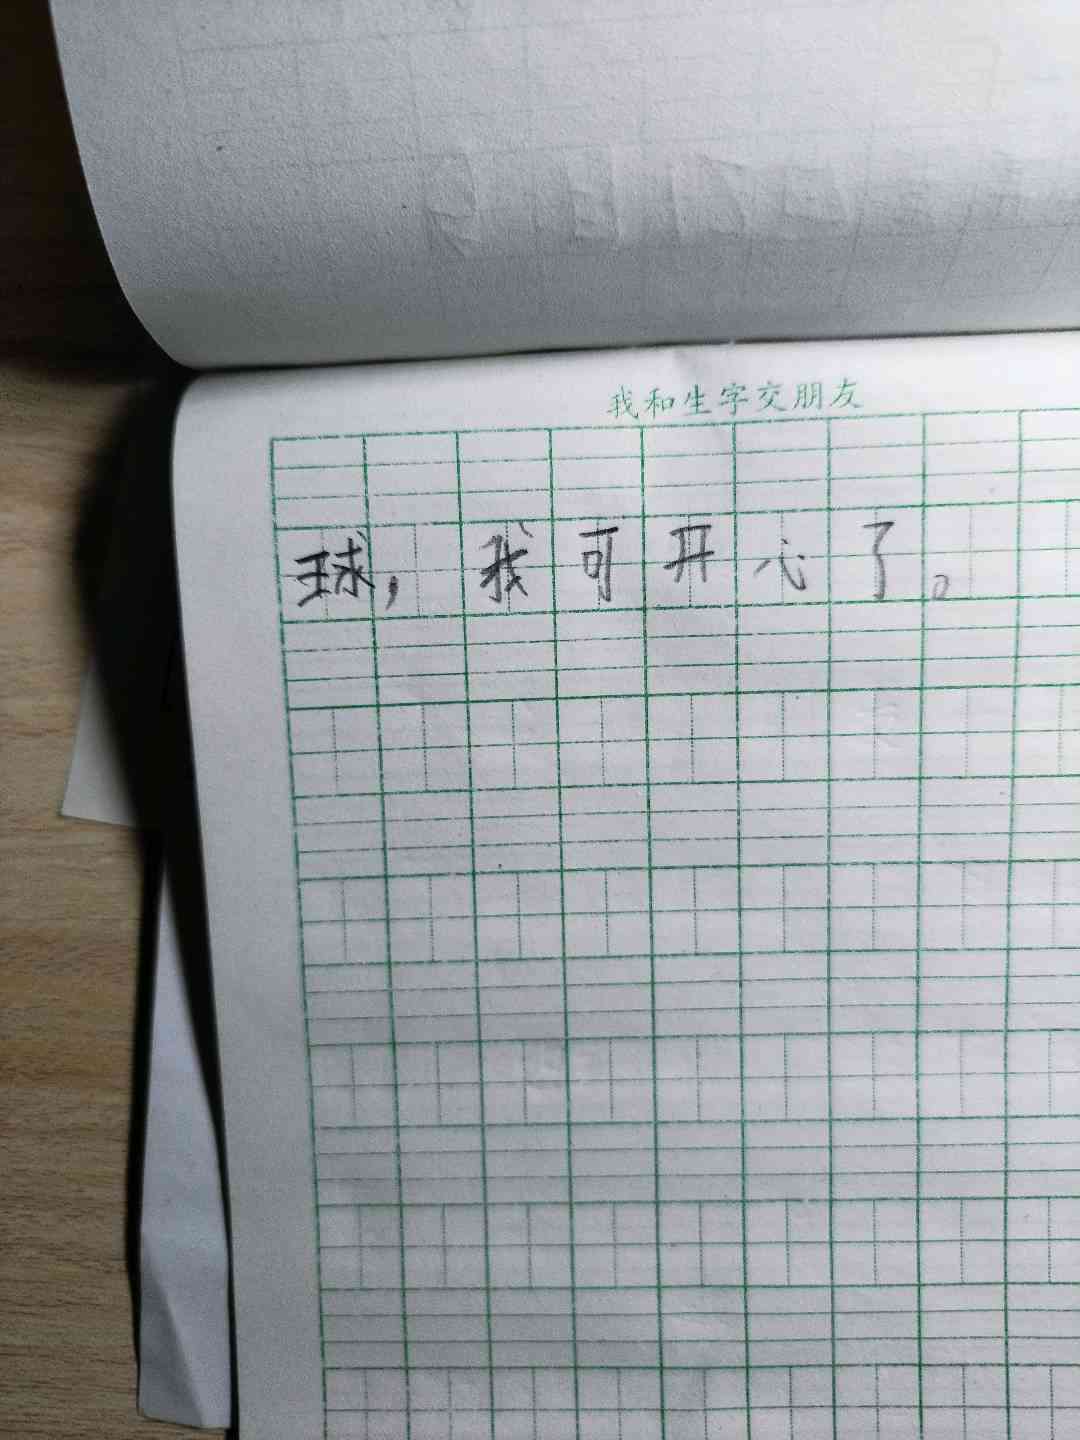 我和生字交朋友
球，我可开心了。